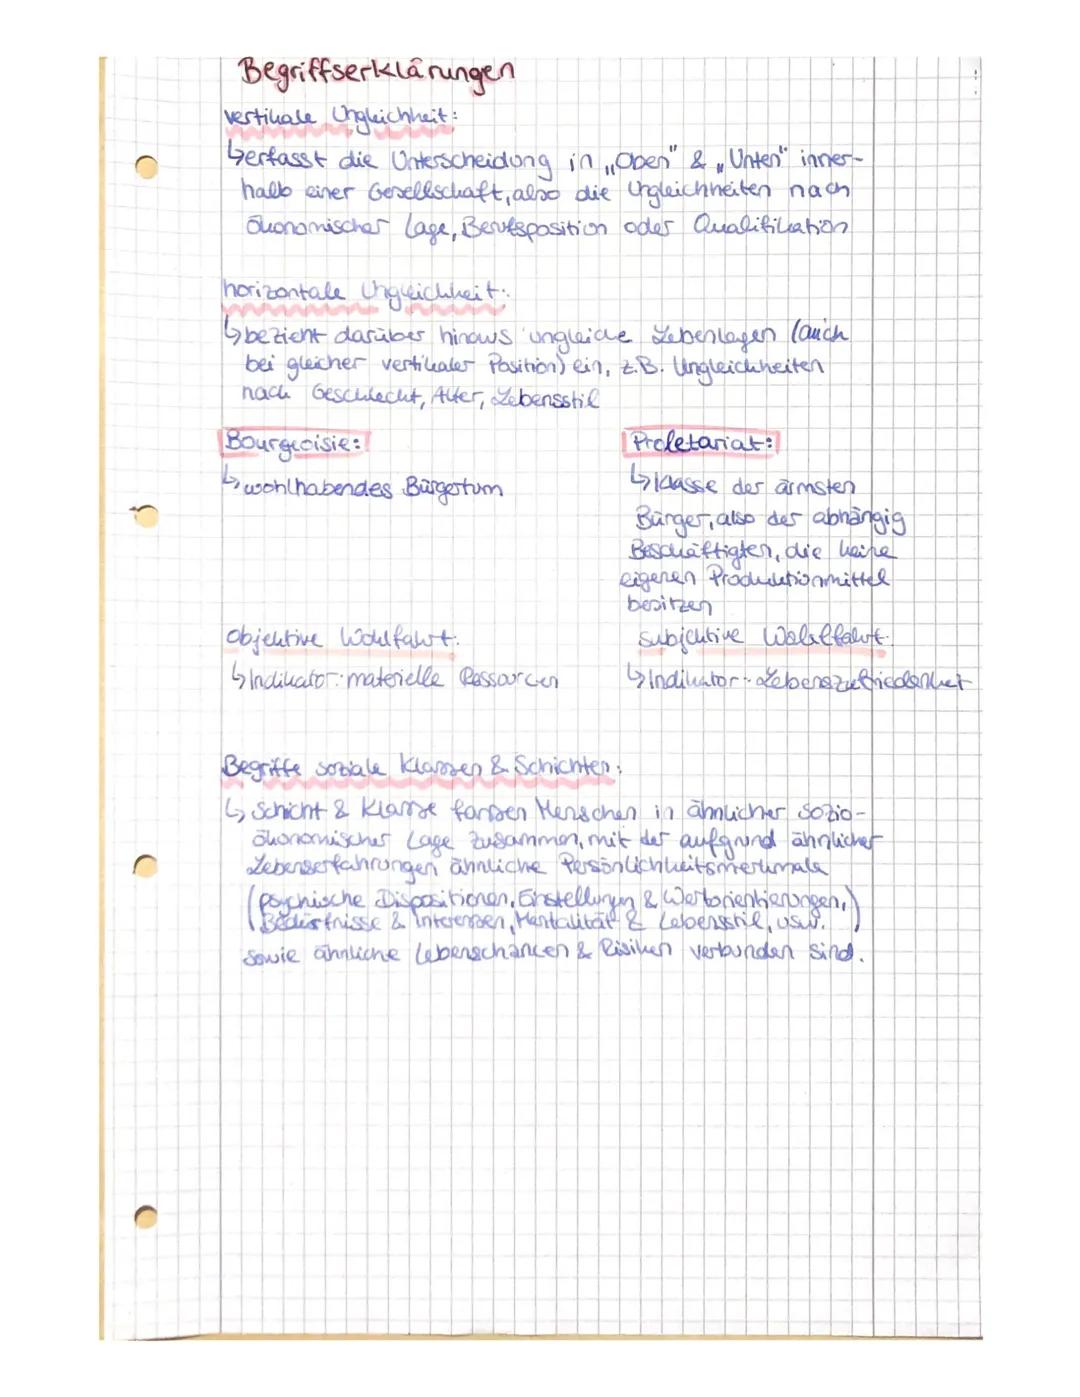 Begriffserklärungen
vertikale Ungleichheit:
↳ erfasst die Unterscheidung in „Oben" & „Unten" inner-
halb einer Gesellschaft, also die Ungleichheiten nach
ökonomischer Lage, Berufsposition oder Qualifikation
horizontale Ungleichheit:
↳ bezieht darüber hinaus ungleiche Lebenlagen (auch
bei gleicher vertikaler Position) ein, z.B. Ungleichheiten
nach Geschlecht, Alter, Lebensstil
Bourgeoisie:
↳ wohlhabendes Bürgertum
Proletariat:
↳ Klasse der ärmsten
Bürger, also der abhängig
Beschäftigten, die keine
eigenen Produktionmittel
besitzen
Objektive Wohlfahrt:
↳ Indikator: materielle Ressourcen
subjektive Wohlfahrt:
↳ Indikator: Lebenszufriedenheit
Begriffe soziale Klassen & Schichten:
↳ Schicht & Klasse fassen Menschen in ähnlicher sozio-
ökonomischer Lage zusammen, mit der aufgrund ähnlicher
Lebenserfahrungen ähnliche Persönlichkeitsmerkmale
(psychische Dispositionen, Einstellungen & Wertorientierungen,
Bedürfnisse & Interessen, Mentalität & Lebensstil, usw.)
sowie ähnliche Lebenschancen & Risiken verbunden sind.